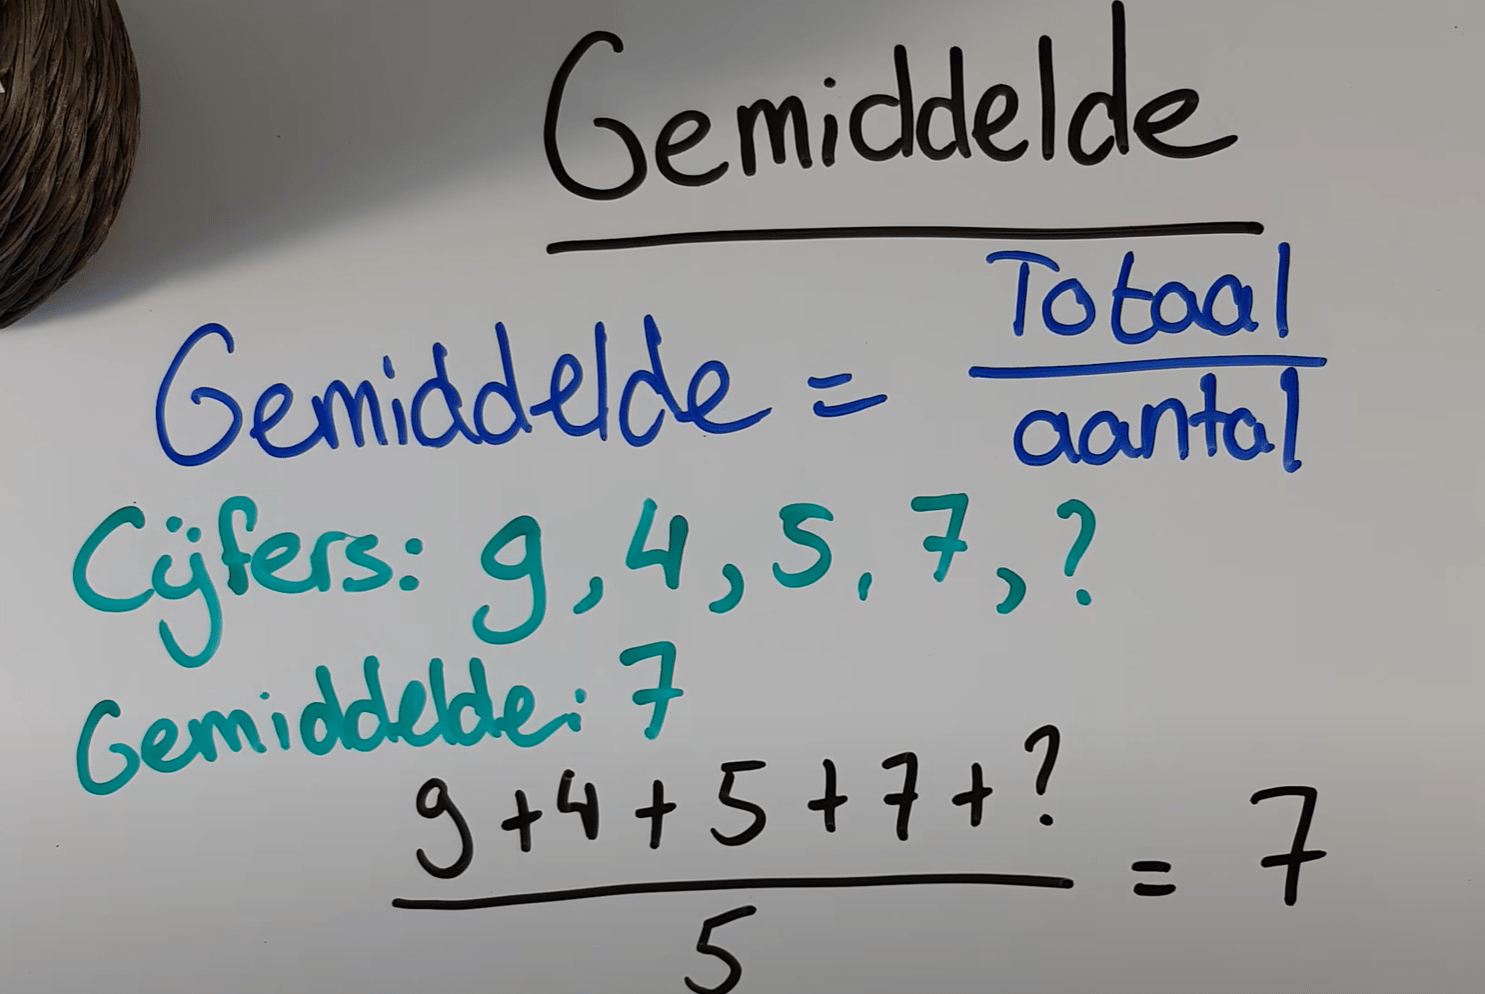 Gemiddelde
Gemiddelde = Totaal
aantal
Cijfers: 9, 4, 5, 7, ?
Gemiddelde: 7
9 + 4 + 5 + 7 + ? = 7
5